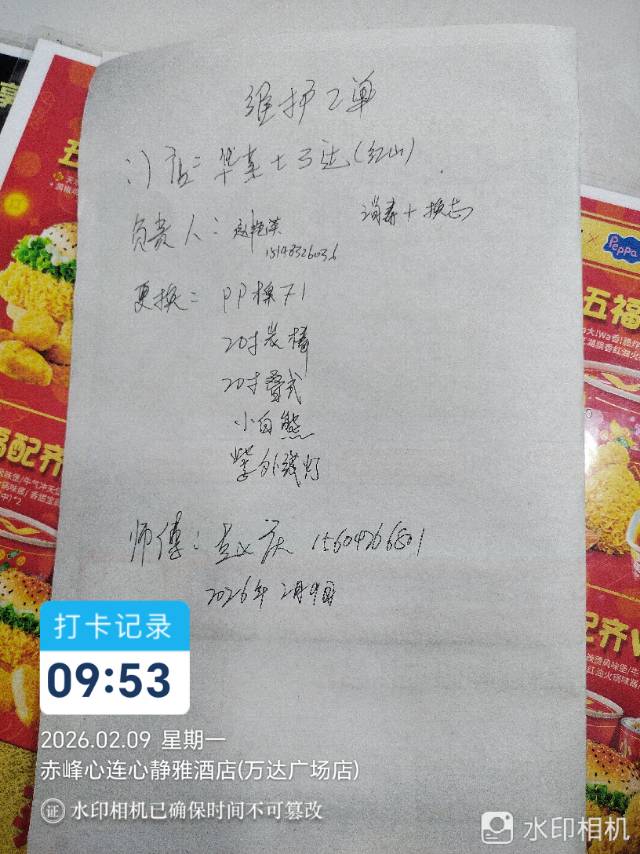 维护工单
门店：华莱士万达(红山)
消毒+换芯
负责人：
更换：PP棉 71
20寸炭桶
20寸叠式
小白熊
紫外线灯
师傅： 15604766801
2026年2月9日
Peppa
五福
配齐
打卡记录
09:53
2026.02.09 星期一
赤峰心连心静雅酒店(万达广场店)
证 水印相机已确保时间不可篡改
水印相机